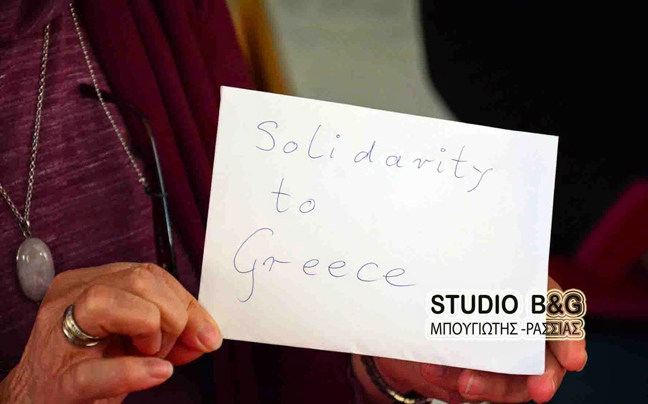 Solidarity
to
Greece
STUDIO B&G
ΜΠΟΥΓΙΩΤΗΣ -ΡΑΣΣΙΑΣ